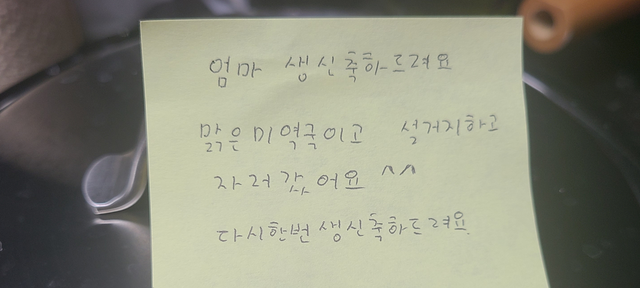 엄마 생신축하드려요
맑은 미역국이고 설거지하고
자러 갔어요 ^^
다시한번 생신축하드려요.